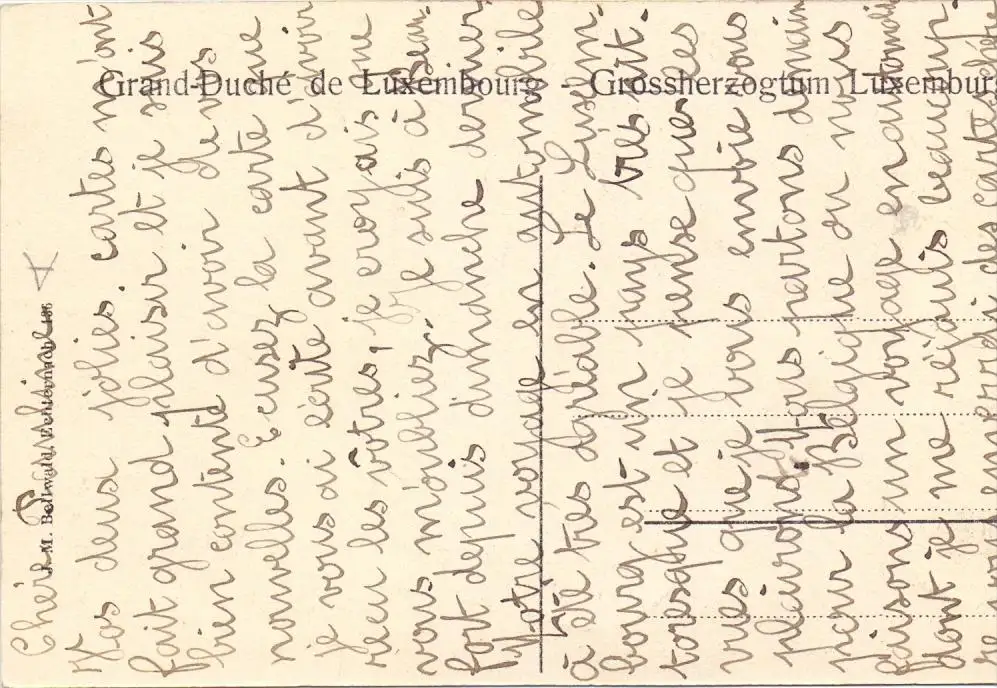 Grand-Duché de Luxembourg - Grossherzogtum Luxemburg
J. M. Bellwald, Echternach
Chère
Vos deux jolies cartes m'ont
fait grand plaisir et je suis
bien contente d'avoir de vos
nouvelles. Excusez la carte que
je vous ai écrite avant d'avoir
reçu les vôtres, je croyais que
vous m'oubliez. Je suis à
fort depuis dimanche dernier
Notre voyage en automobile
a été très agréable. Le Luxem-
bourg est un pays très pit-
toresque et je pense que les
vues que je vous envoie vous
plairont. Nous partons demain
pour la Belgique ou nous
faisons un voyage en automobile
dont je me réjouis beaucoup.
Je vous enverrai des cartes